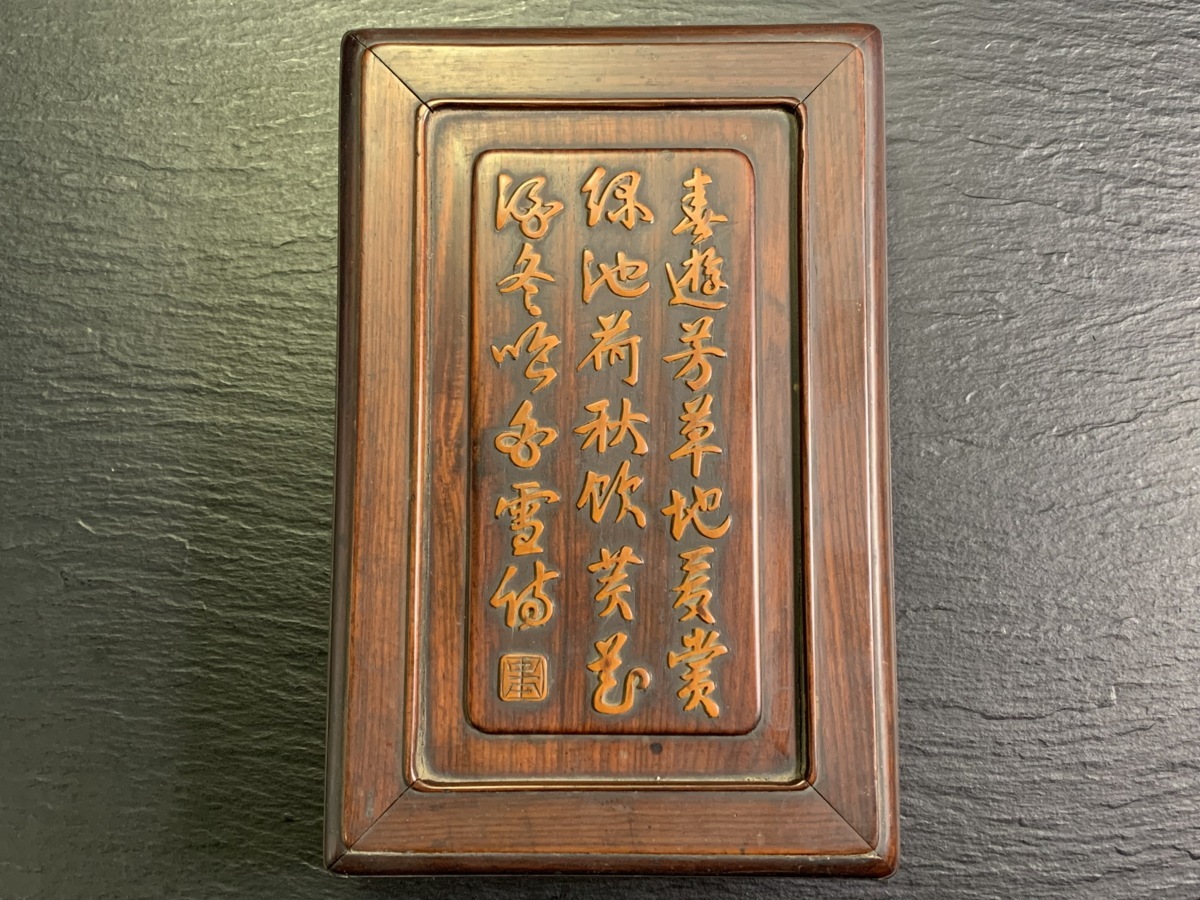 春遊芳草地夏賞
綠池荷秋飲黄花
酒冬吟白雪詩